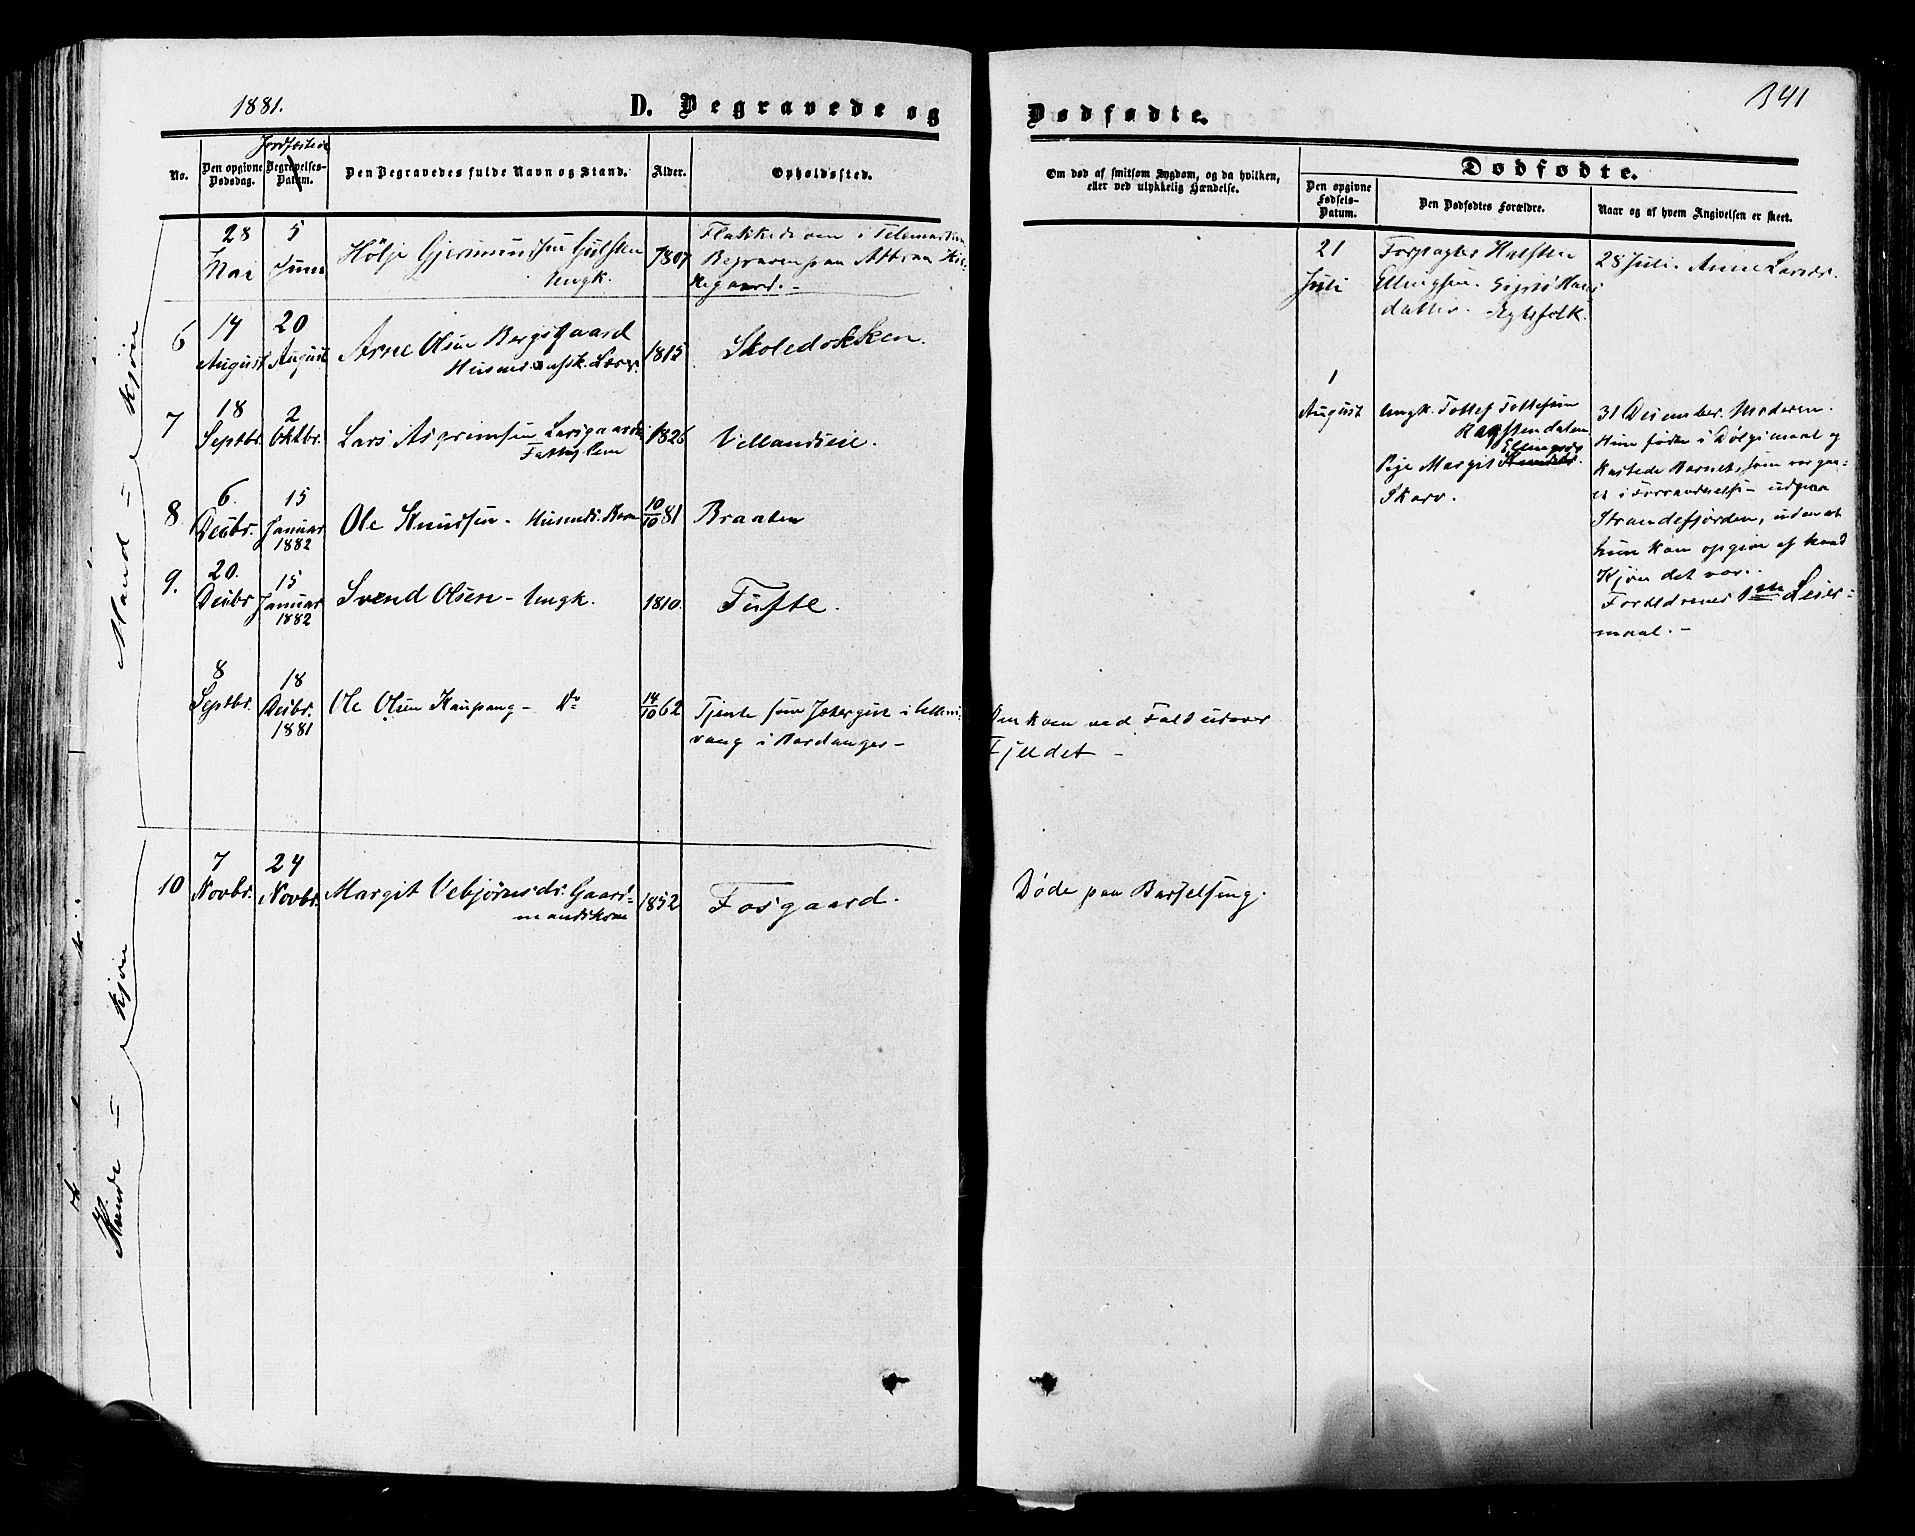 1881.
D. Begravede og
Dødfødte.
341
No.
Den opgivne Dødsdag.
Jordfæstede
Begravelses-Datum.
Den Begravedes fulde Navn og Stand.
Alder.
Opholdssted.
Om død af smitsom Sygdom, og da hvilken,
eller ved ulykkelig Hændelse.
Dødfødte.
Den opgivne Fødsels-Datum.
Den Dødfødtes Forældre.
Naar og af hvem Angivelsen er skeet.
Mand - kjøn
28 Mai
5 Juni
Hölje Gjermundsen Gulsten
Ungk.
1807
Flakkede om i Telemarken
Begraven paa Attraa Kir-
kegaard. -
6
14 August
20 August
Arne Olsen Bergsgaard
Husmd. afsk. Lærer.
1815
Skoledokken.
7
18 Septbr.
2 Oktbr.
Lars Asgrimsen Larsgaard
Fattiglem
1826
Villandseie.
8
6. Decbr.
15 Januar 1882
Ole Knudsen - Husmds. Barn
10/10 81
Braaten
9.
20. Decbr
15 Januar 1882
Svend Olsen - Ungk.
1810.
Tufte.
8 Septbr.
18 Decbr. 1881
Ole Olsen Kaupang - Do
14/10 62
Tjente som Jætergut i Ullens-
vang i Hardanger -
Omkom ved Fald udover
Fjeldet -
Kvinde - kjøn
10
7 Novbr.
24 Novbr.
Margit Vebjørnsdr. Gaard-
mandskone
1852
Fosgaard.
Døde paa Barselseng.
21 Juli
Forpagter Halsten
Ellingsen. Sigrid Hans
datter. Ægtefolk.
28 Juli. Anne Larsdr.
1 August
Ungk. Tollef Tollefsen
Hagstendalen
Ellingsdr.
Pige Margit Knudsdr.
Skarv.
31 December. Moderen.
Hun fødte i Dølgsmaal og
kastede Barnet, som var gaa-
et i Forraadnelse - udpaa
Strandefjorden, uden at
hun kan opgive af hvad
Kjøn det var.
Forældrenes 1ste Leier-
maal. -